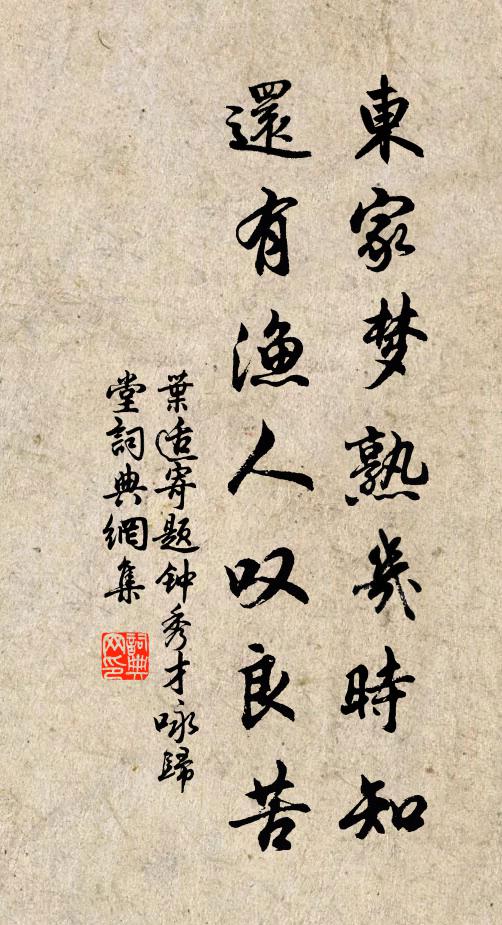 東家梦熟幾時知
還有漁人叹良苦
葉适寄題钟秀才咏歸
堂詞典網集
詞典
网印